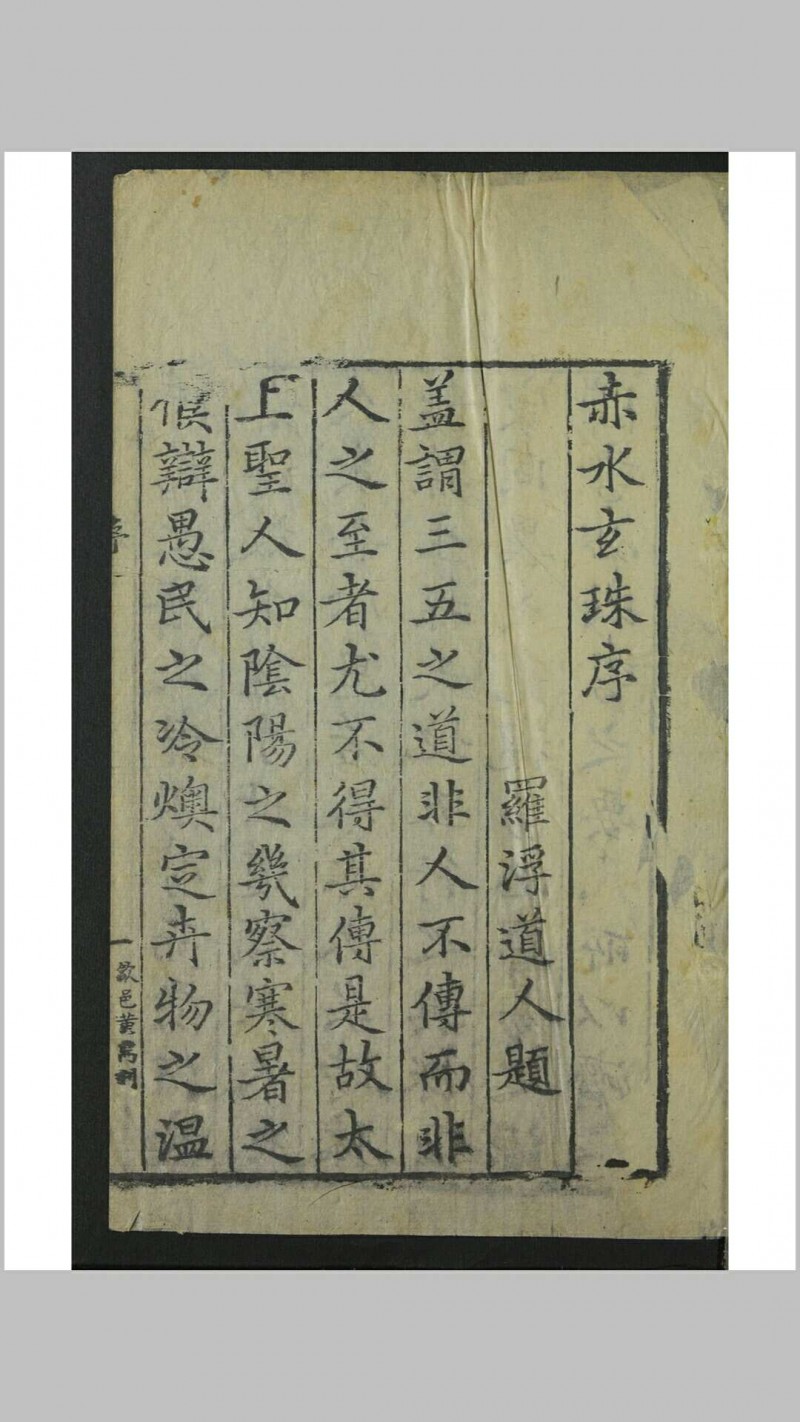 赤水玄珠序
羅浮道人題
盖謂三五之道非人不傳而非
人之至者尤不得其傳是故太
上聖人知陰陽之幾察寒暑之
候辯愚民之冷燠定卉物之温
序
一
歙邑黄鼎刊